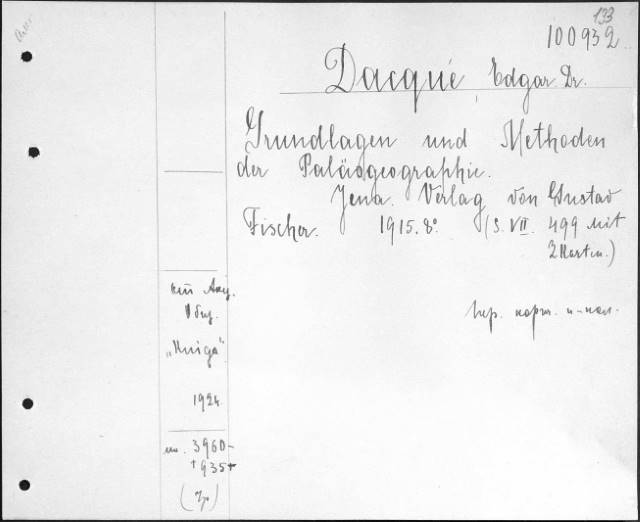 133
100932
Dacqué, Edgar Dr.
Grundlagen und Methoden
der Paläogeographie.
Jena. Verlag von Gustav
Fischer. 1915. 8° (S. VII. 499 Mit
2 Karten.)
"Kniga"
1924
3960-
+935+